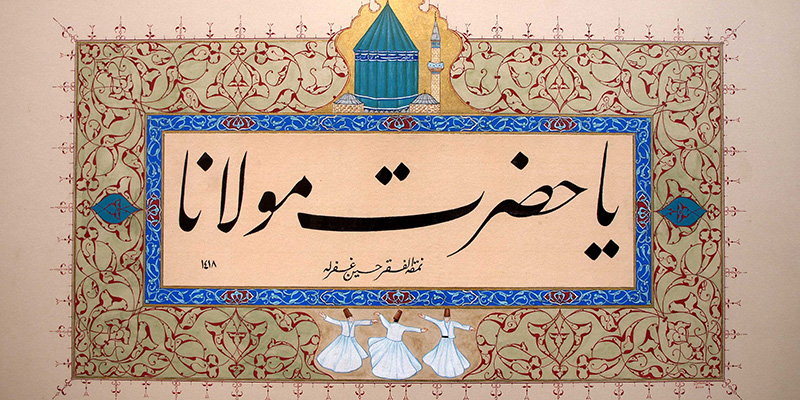 يا حضرت مولانا
نمقه الفقير حسين غفرله
١٤١٨